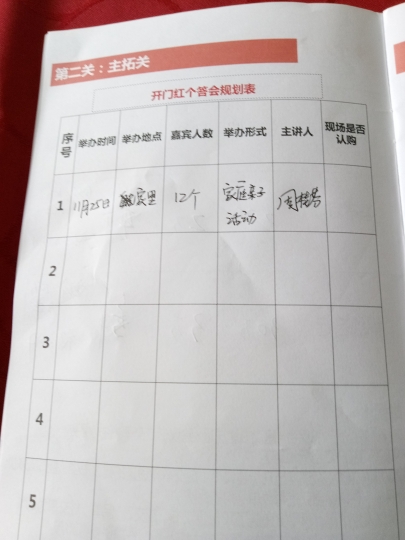 第二关：主拓关
开门红个答会规划表
序号 举办时间 举办地点 嘉宾人数 举办形式 主讲人 现场是否认购
1 11月25日 宾里 12个 家庭亲子活动 周
2
3
4
5